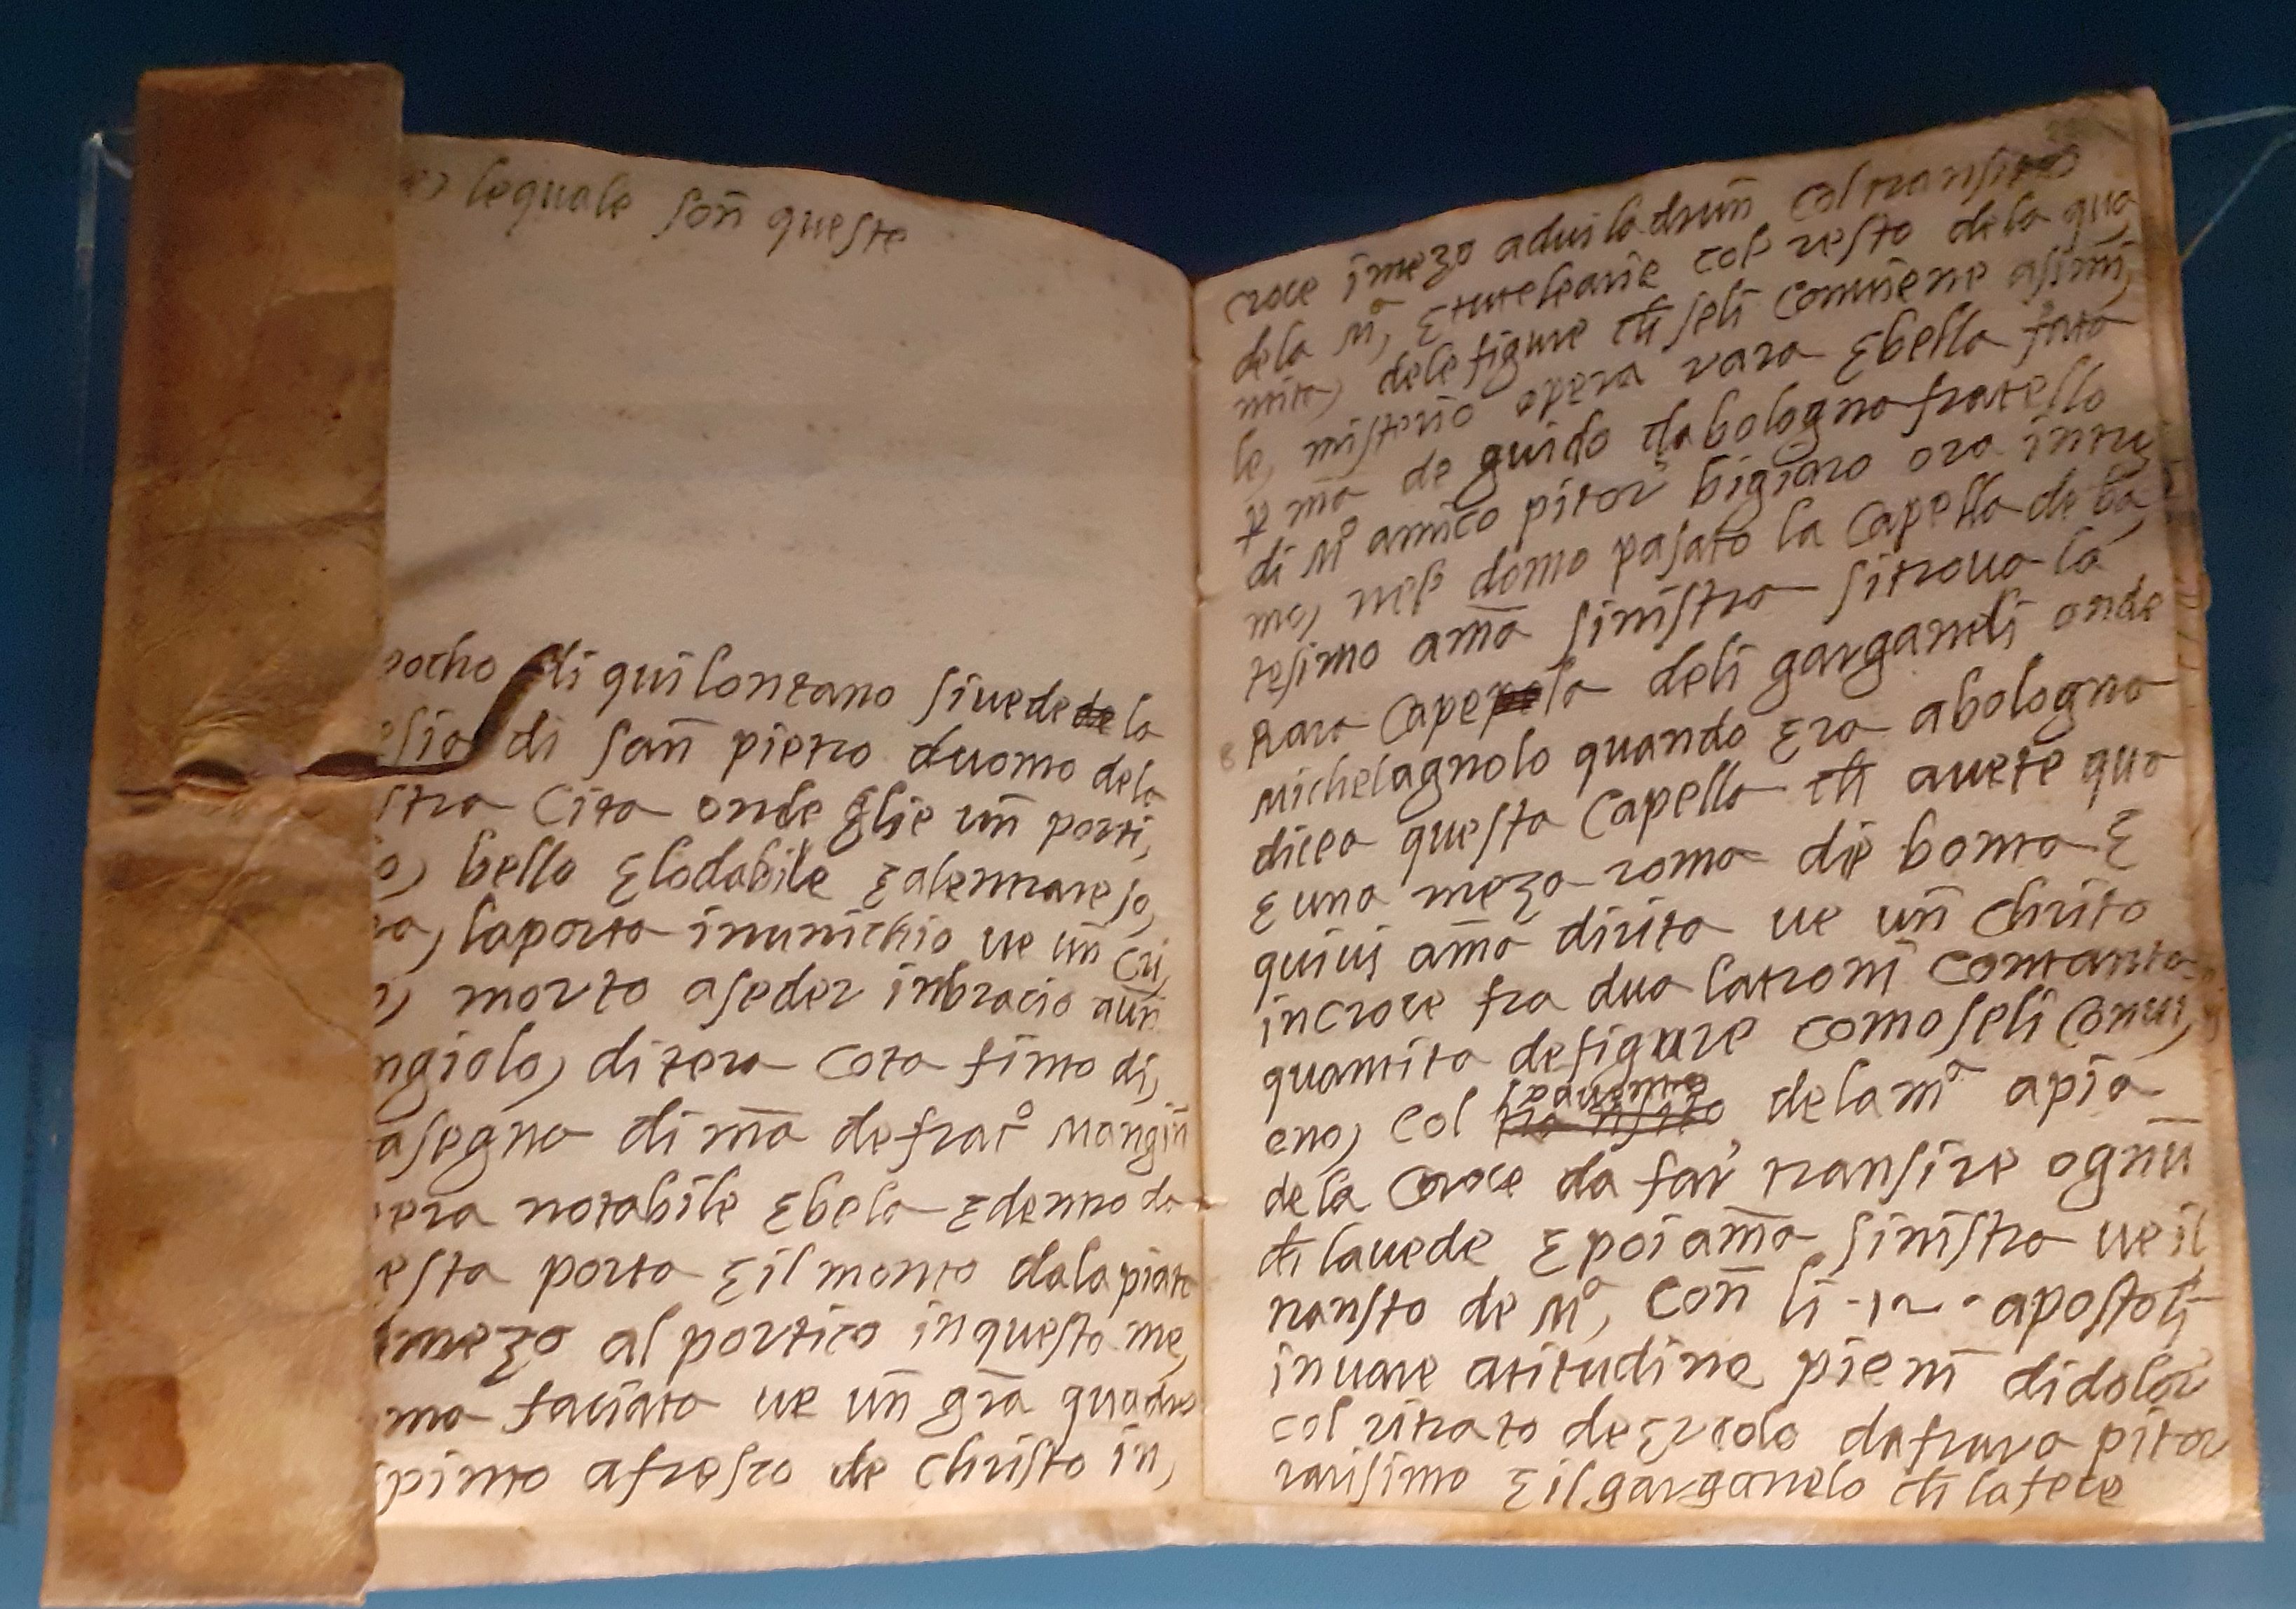 lequale son̄ queste
pocho di qui lontano si vede de la
esia di san̄ pietro duomo dela
stra Cita onde glie un̄ porti,
o) bello Elodabile Ealentrare so,
ra, laporta inunichio ve un̄ Cri,
o) morto aseder inbracio aun̄
ngiolo, di tera Cota finto di,
asegno di m̄a de fracº Mangin̄
pera notabile Ebela Edentro da
esta porta Eil monto dalapiate
imezo al portico inquesto me,
mo faciata ve un̄ grā quadro
pinto afresco de Christo in,
croce imezo adui ladrun̄ col transito
dela Mª, Etutelearie col resto dela qua
ntita, dele figure ch seli Conviene asimi
le, misterio opera rara Ebella fata
p m̄a de guido da bologna fratello
di Mº amico pitor bigiaro ora intri
mo, nel domo pasato la Capella de ba
tesimo am̄a sinistra si trova la
Rara Capella deli garganeli onde
Michelagnolo quando Era abologna
dicea questa Capella ch avete qua
E una meza roma de bonta E
quivi am̄a dirita ve un̄ Chrito
incroce fra dua latroni Contanta
quantita defigure como seli Convi,
eno, Col transito spasimo dela mª apia
de la Croce da far transire ognū
ch lavede E poi am̄a sinistra ve il
transto de Mª, Con̄ li -12- apostoli
invare atitudine pieni didolor
col ritrato de Ercolo da frara pitor
rarisimo Eil garganelo ch lafece